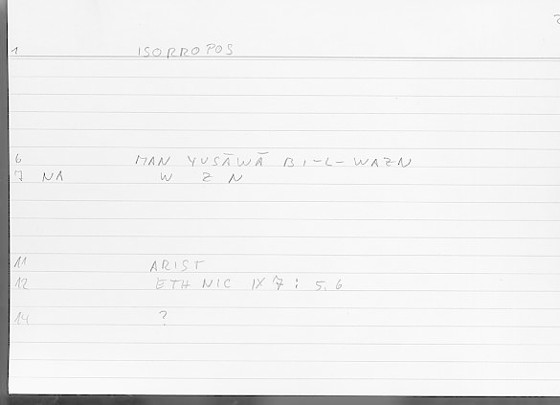 1 ISORROPOS
6 MAN YUSĀWĀ BI-L-WAZN
7 NA W Z N
11 ARIST
12 ETH NIC IX 7: 5.6
14 ?